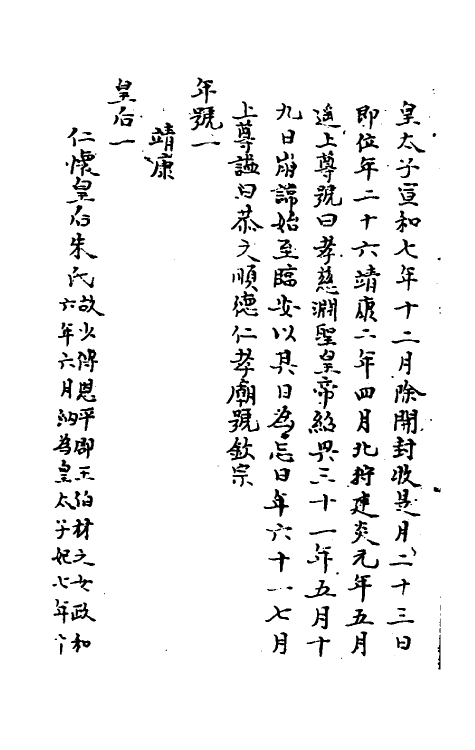 皇太子宣和七年十二月除開封牧是月二十三日
即位年二十六靖康二年四月北狩建炎元年五月
遥上尊號曰孝慈淵聖皇帝紹興三十一年五月十
九日崩諱始至臨安以其日為忌日年六十一七月
上尊諡曰恭文順德仁孝廟號欽宗
年號一
靖康
皇后一
仁懷皇后朱氏故少傅恩平郡王伯材之女政和
六年六月納為皇太子妃七年十